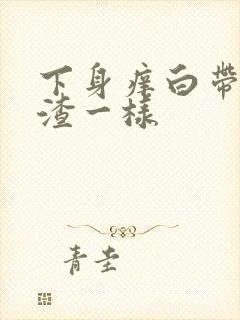 下身痒白带
渣一样
青圭